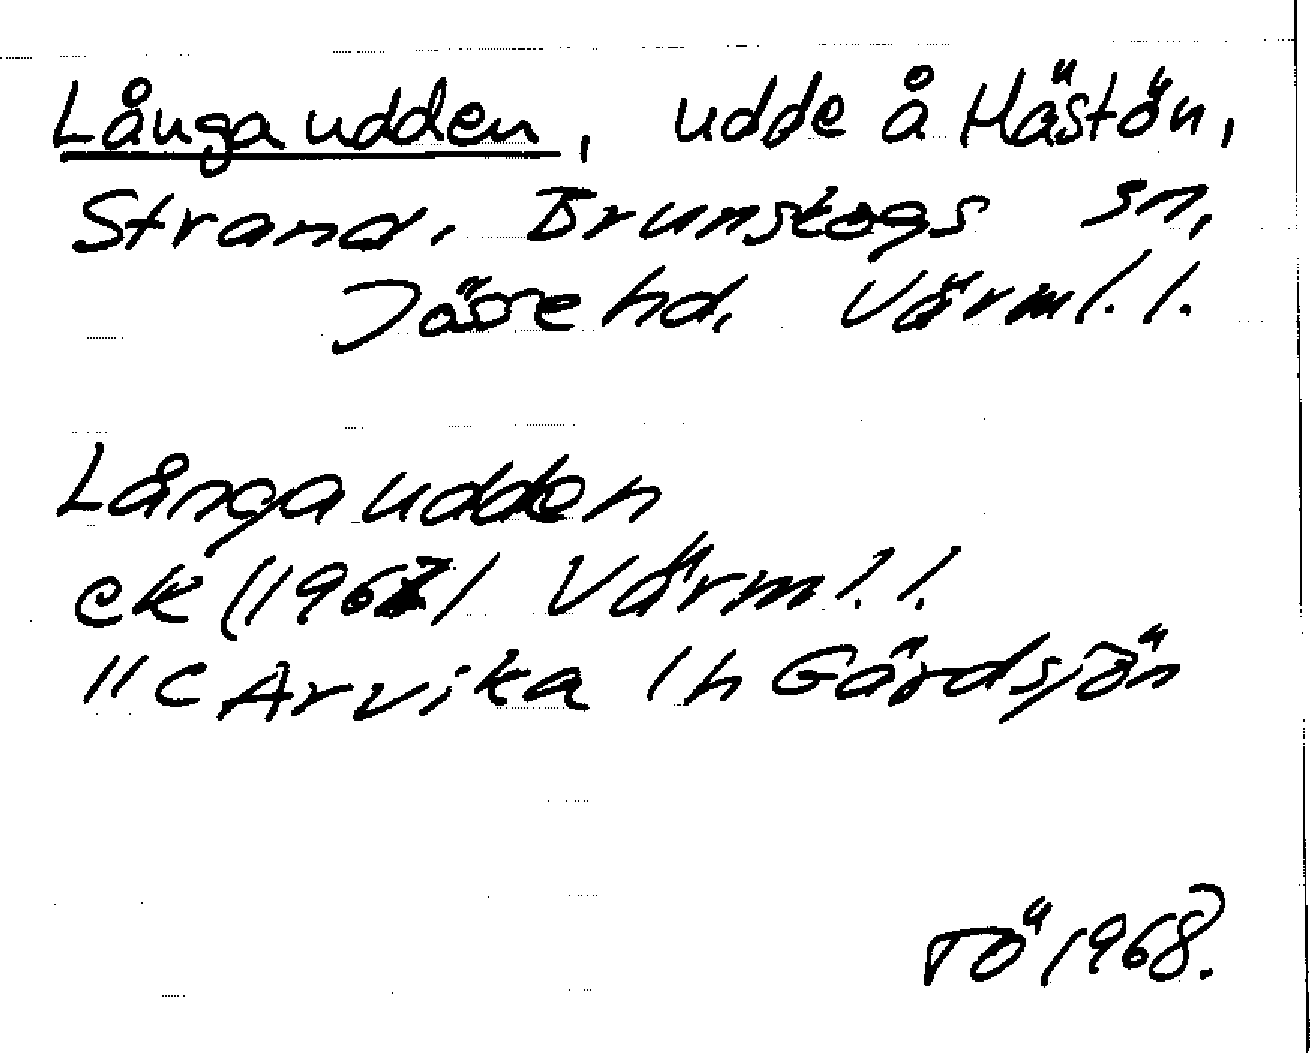 Långa udden, udde å Hästön,
Strand, Brunskogs sn,
Jösse hd, Värml. l.
Långa udden
ek (1967) Värml. l.
11 C Arvika 1 h Gärdsjön
TÖ 1968.